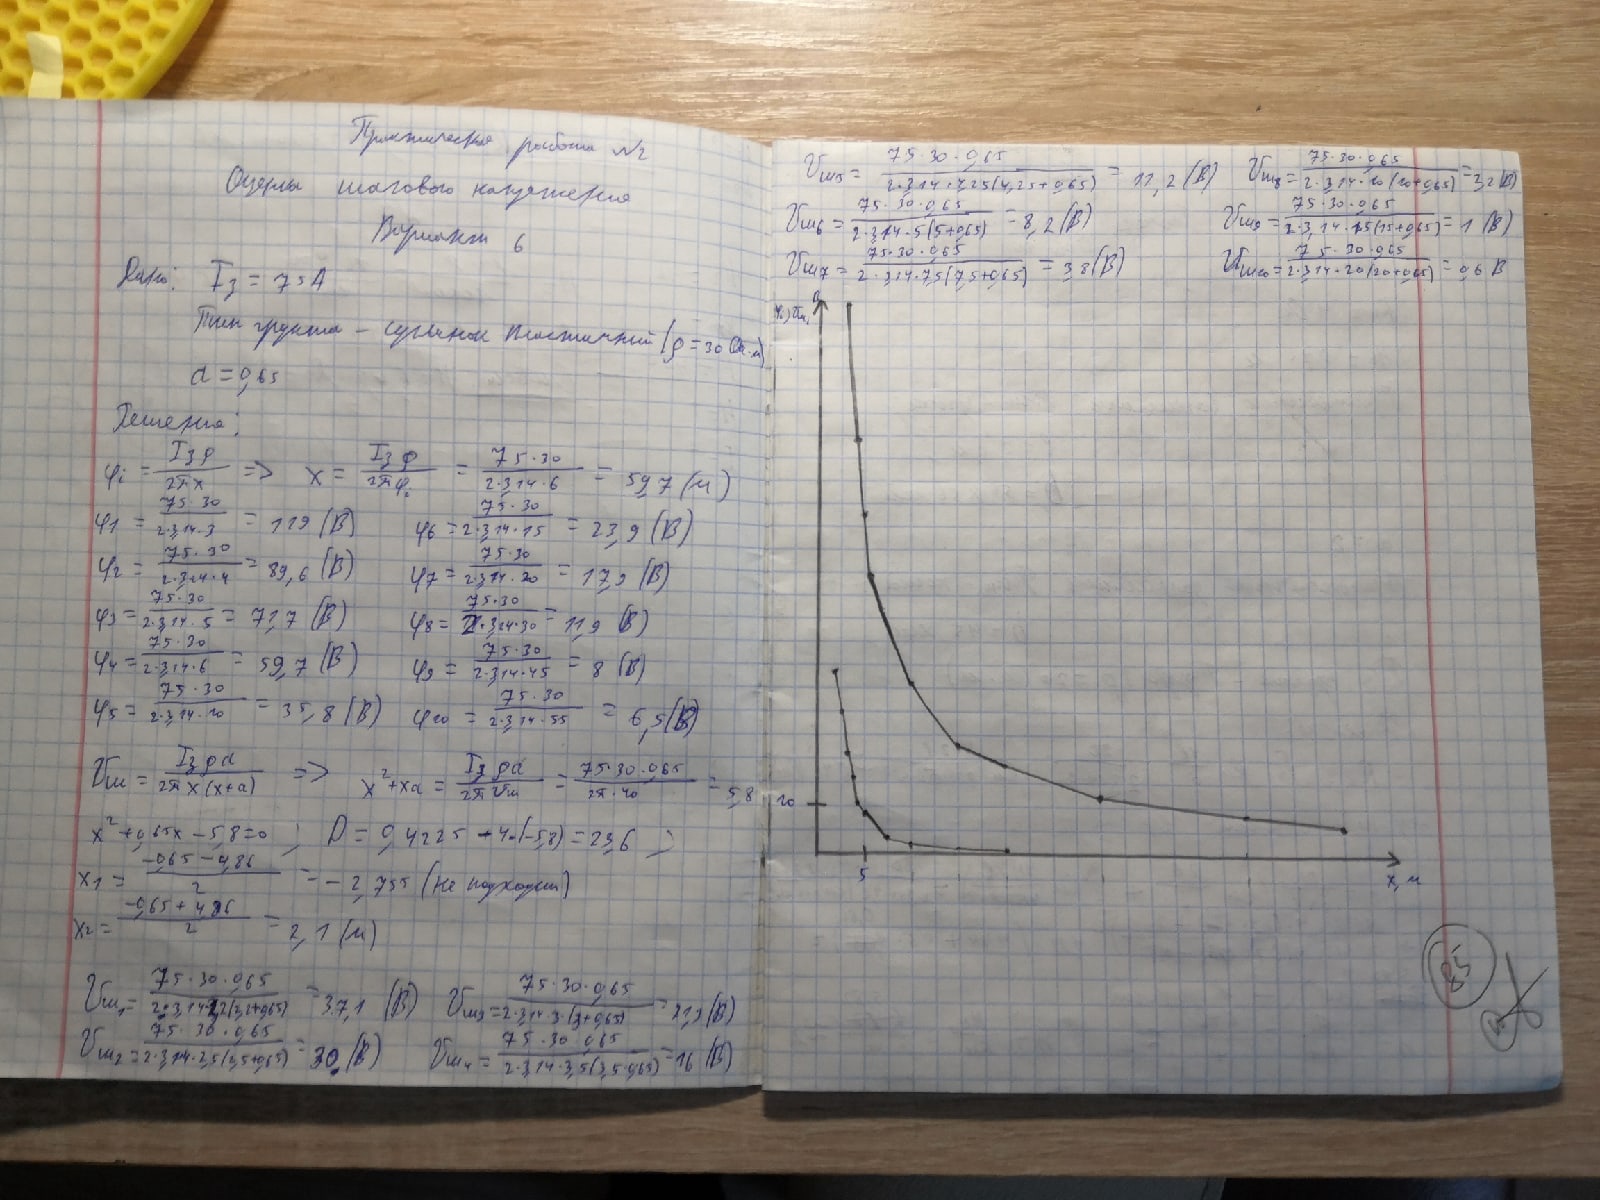 Практическая работа №2
Оценка шагового напряжения
Вариант 6
Дано: Iз = 75А
Тип грунта – суглинок пластичный (ρ = 30 Ом·м)
a = 0,65
Решение:
φi = Iзρ/2πx => x = Iзρ/2πφi = 75·30/2·3,14·6 = 59,7 (м)
φ1 = 75·30/2·3,14·3 = 119 (В) φ6 = 75·30/2·3,14·15 = 23,9 (В)
φ2 = 75·30/2·3,14·4 = 89,6 (В) φ7 = 75·30/2·3,14·20 = 17,9 (В)
φ3 = 75·30/2·3,14·5 = 71,7 (В) φ8 = 75·30/2·3,14·30 = 11,9 (В)
φ4 = 75·30/2·3,14·6 = 59,7 (В) φ9 = 75·30/2·3,14·45 = 8 (В)
φ5 = 75·30/2·3,14·10 = 35,8 (В) φ10 = 75·30/2·3,14·55 = 6,5 (В)
Uш = Iзρa/2πx(x+a) => x²+xa = Iзρa/2πUш = 75·30·0,65/2π·40 = 5,8
x²+0,65x – 5,8=0 ; D = 0,4225 – 4·(–5,8) = 23,6 ;
x1 = –0,65 – 4,86/2 = – 2,755 (не подходит)
x2 = –0,65 + 4,86/2 = 2,1 (м)
Uш1 = 75·30·0,65/2·3,14·2,2(2,2+0,65) = 37,1 (В) Uш3 = 75·30·0,65/2·3,14·3·(3+0,65) = 21,3 (В)
Uш2 = 75·30·0,65/2·3,14·2,5(2,5+0,65) = 30 (В) Uш4 = 75·30·0,65/2·3,14·3,5(3,5·0,65) = 16 (В)
Uш5 = 75·30·0,65/2·3,14·4,25(4,25+0,65) = 11,2 (В) Uш8 = 75·30·0,65/2·3,14·10(10+0,65) = 2,2 (В)
Uш6 = 75·30·0,65/2·3,14·5(5+0,65) = 8,2 (В) Uш9 = 75·30·0,65/2·3,14·15(15+0,65) = 1 (В)
Uш7 = 75·30·0,65/2·3,14·7,5(7,5+0,65) = 3,8 (В) Uш10 = 75·30·0,65/2·3,14·20(20+0,65) = 0,6 В
В
10
5
x, м
85